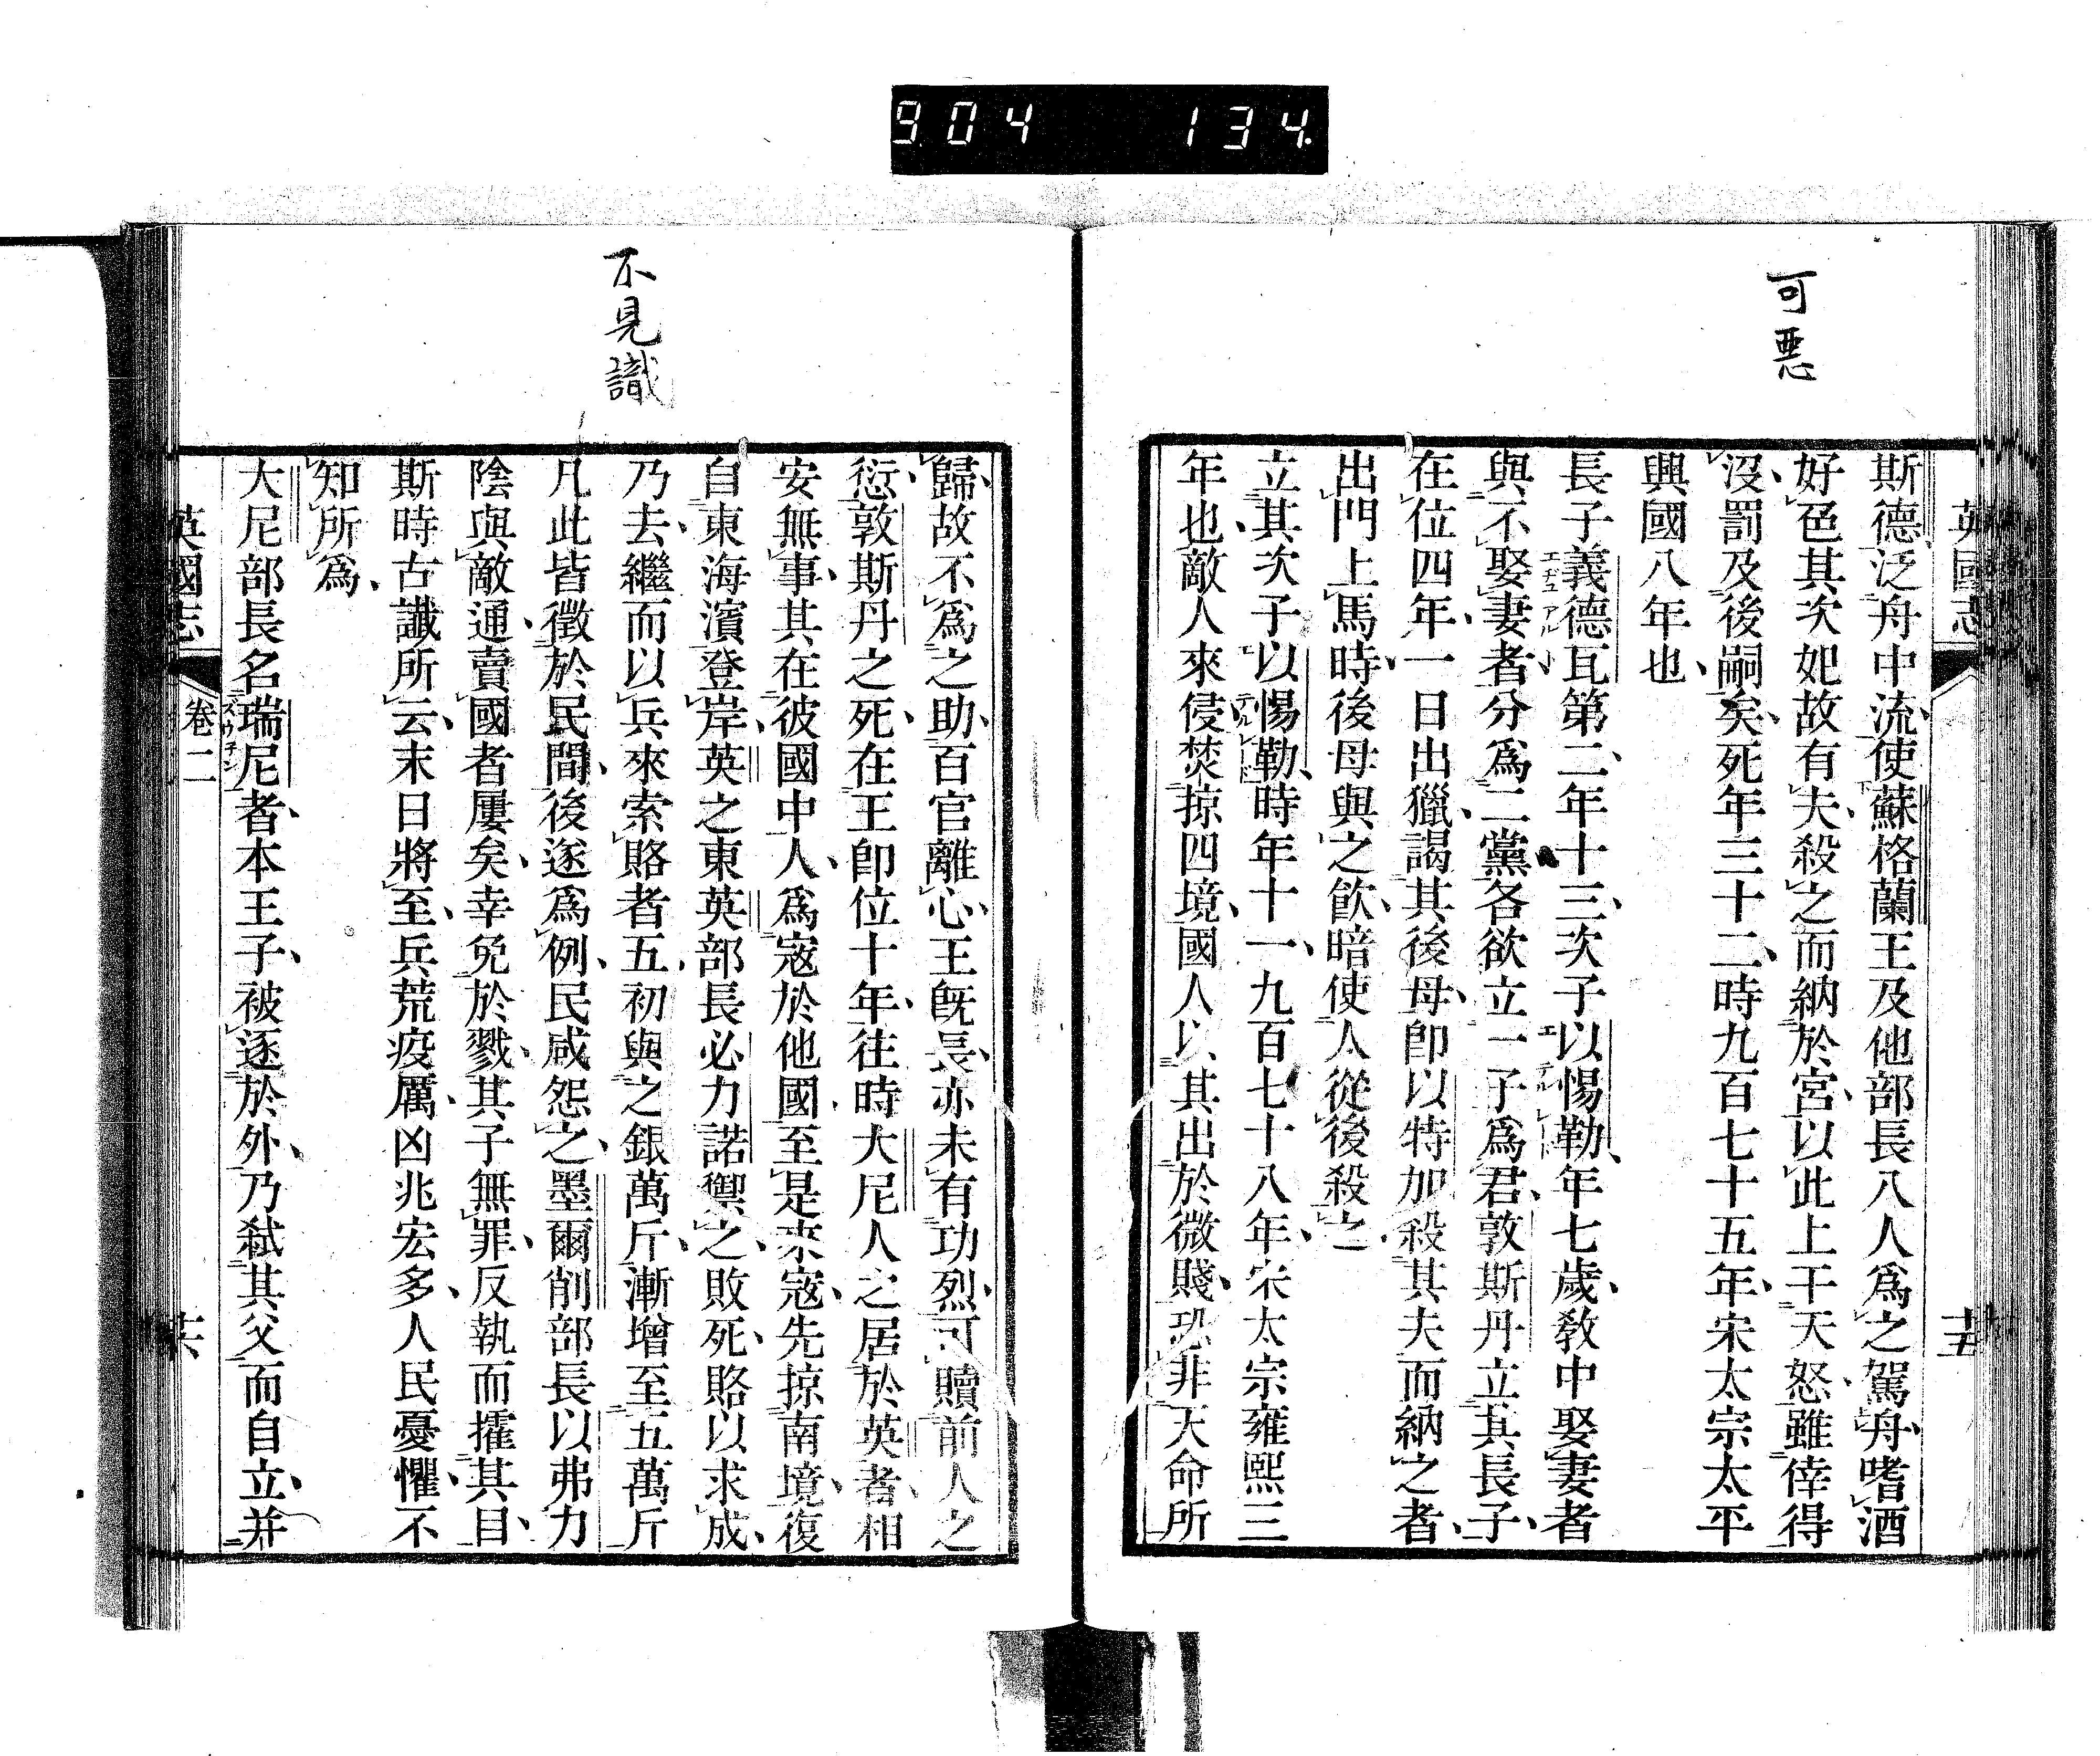 904 134
可惡
英國志
斯德泛舟中流使蘇格蘭王及他部長八人爲之駕舟嗜酒
好色其次妃故有夫殺之而納於宮以此上干天怒雖倖得
沒罰及後嗣矣死年三十二時九百七十五年宋太宗太平
興國八年也
長子義德瓦第二年十三次子以惕勒年七歲敎中娶妻者
與不娶妻者分爲二黨各欲立一子爲君敦斯丹立其長子
在位四年一日出獵謁其後母卽以特加殺其夫而納之者
出門上馬時後母與之飮暗使人從後殺之
立其次子以惕勒時年十一九百七十八年宋太宗雍熙三
年也敵人來侵焚掠四境國人以其出於微賤恐非天命所
不見識
歸故不爲之助百官離心王旣長亦未有功烈可贖前人之
愆敦斯丹之死在王卽位十年往時大尼人之居於英者相
安無事其在彼國中人爲寇於他國至是來寇先掠南境復
自東海濱登岸英之東英部長必力諾禦之敗死賂以求成
乃去繼而以兵來索賂者五初與之銀萬斤漸增至五萬斤
凡此皆徵於民間後遂爲例民咸怨之墨爾削部長以弗力
陰與敵通賣國者屢矣幸免於戮其子無罪反執而擢其目
斯時古讖所云末日將至兵荒疫厲凶兆宏多人民憂懼不
知所爲
大尼部長名瑞尼者本王子被逐於外乃弑其父而自立并
英國志
卷二